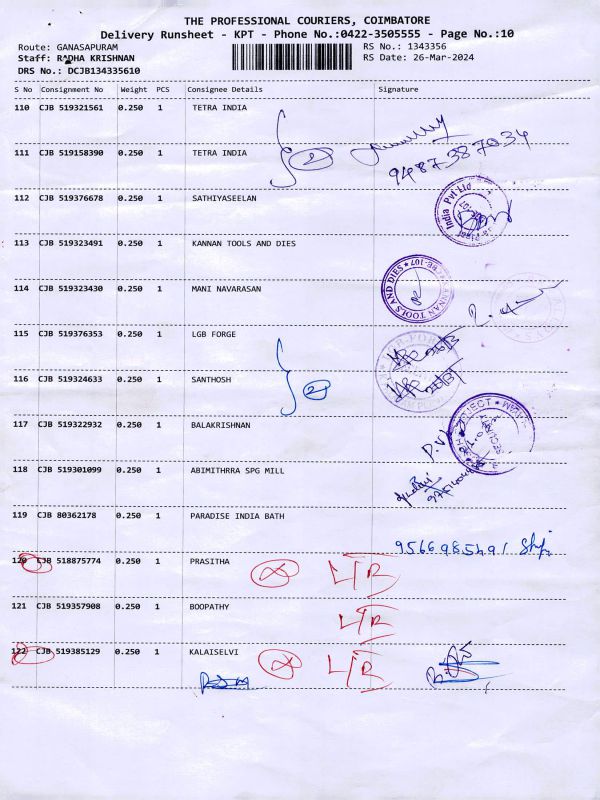 THE PROFESSIONAL COURIERS, COIMBATORE
Delivery Runsheet - KPT - Phone No.:0422-3505555 - Page No.:10
Route: GANASAPURAM
RS No.: 1343356
Staff: RADHA KRISHNAN
RS Date: 26-Mar-2024
DRS No.: DCJB134335610
S No Consignment No Weight PCS Consignee Details Signature
110 CJB 519321561 0.250 1 TETRA INDIA
2
9487387034
111 CJB 519158390 0.250 1 TETRA INDIA
112 CJB 519376678 0.250 1 SATHIYASEELAN
India Pvt Ltd
113 CJB 519323491 0.250 1 KANNAN TOOLS AND DIES
KANNAN TOOLS AND DIES
114 CJB 519323430 0.250 1 MANI NAVARASAN
115 CJB 519376353 0.250 1 LGB FORGE
116 CJB 519324633 0.250 1 SANTHOSH
2
117 CJB 519322932 0.250 1 BALAKRISHNAN
118 CJB 519301099 0.250 1 ABIMITHRRA SPG MILL
119 CJB 80362178 0.250 1 PARADISE INDIA BATH
9566985491
120 CJB 518875774 0.250 1 PRASITHA
L/R
121 CJB 519357908 0.250 1 BOOPATHY
L/R
122 CJB 519385129 0.250 1 KALAISELVI
L/R